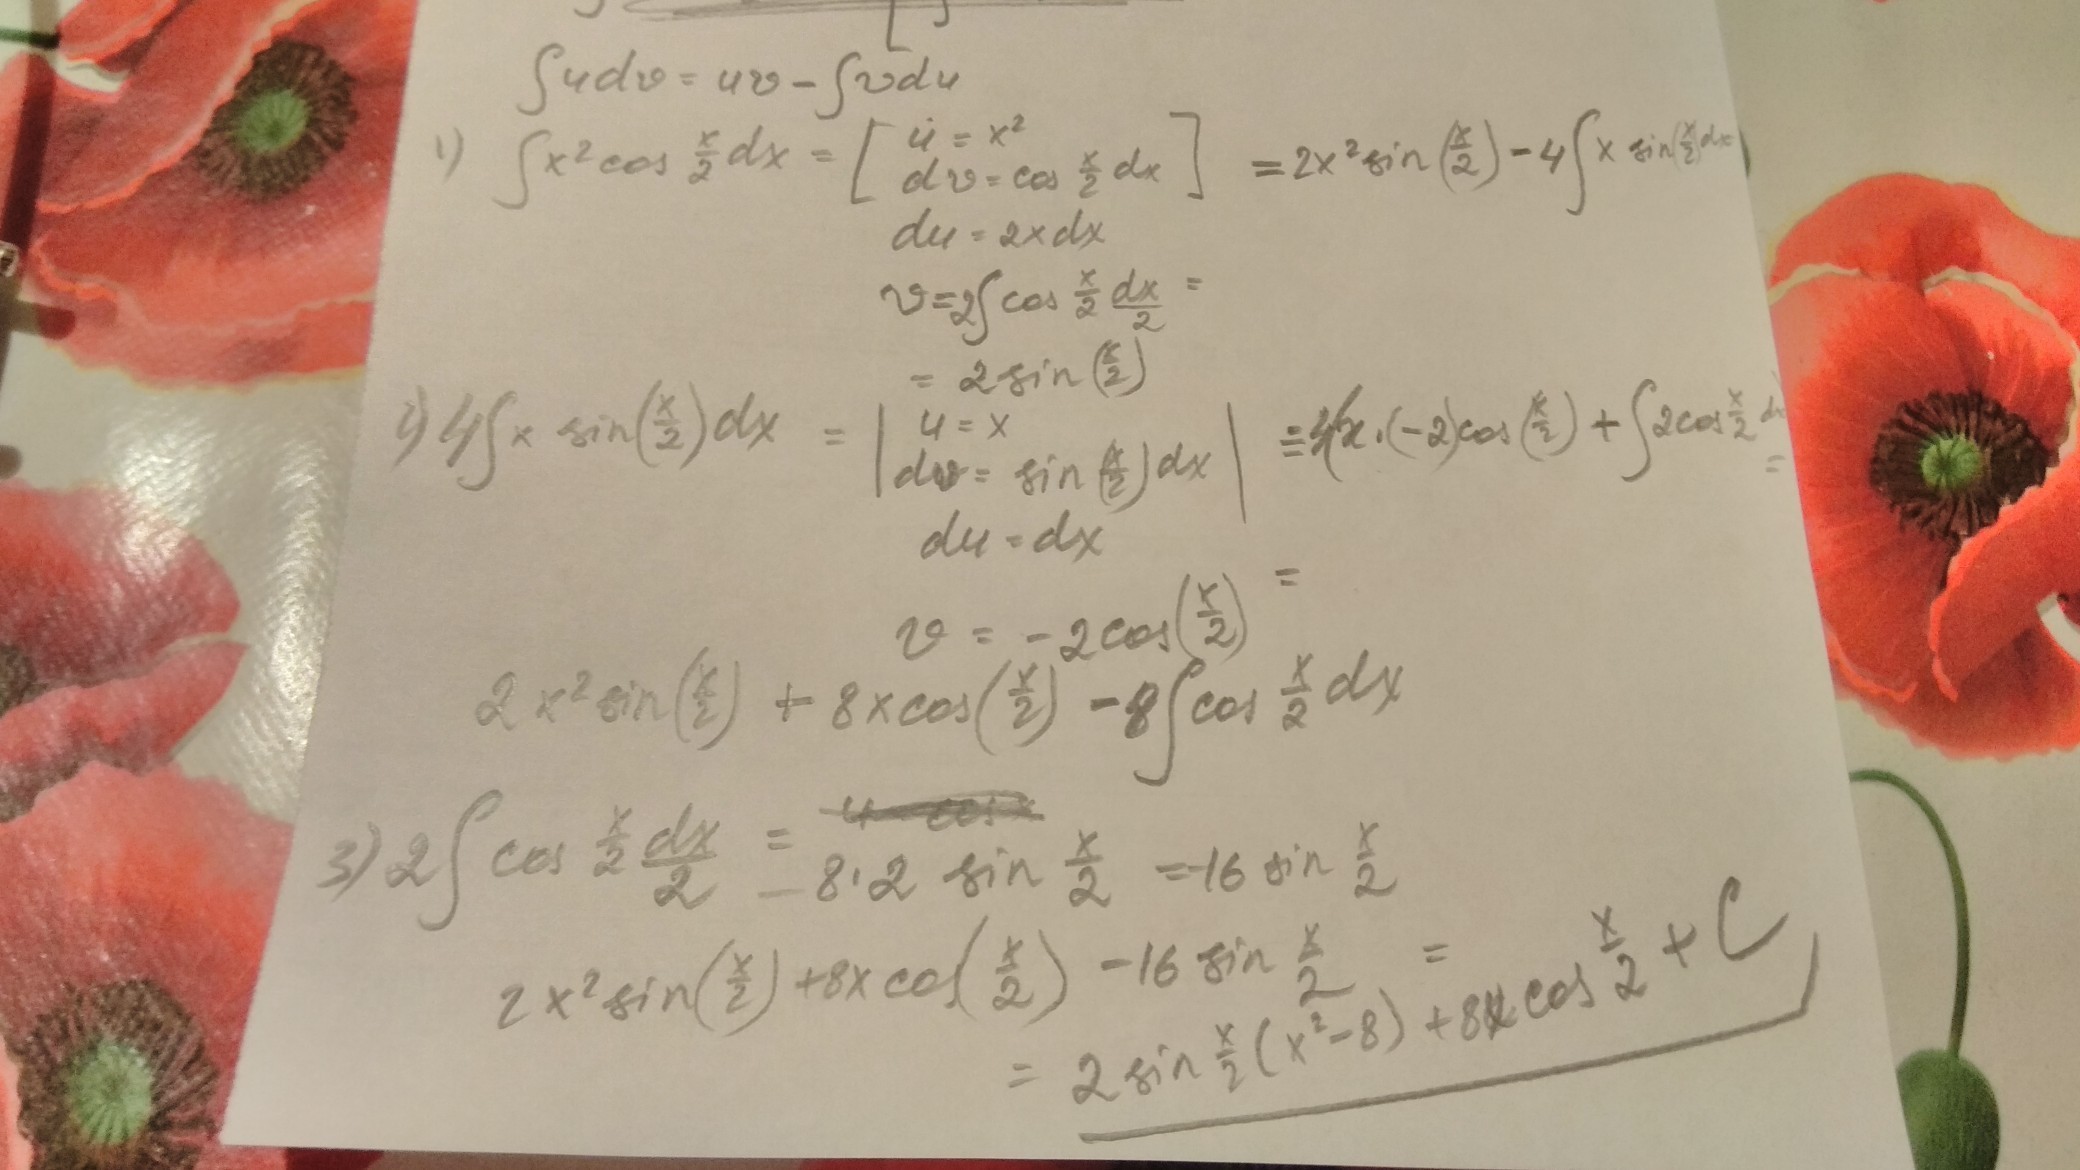 ∫udv = uv - ∫vdu
1) ∫x² cos x/2 dx = [ u = x² dv = cos x/2 dx ] = 2x² sin(x/2) - 4∫x sin(x/2)dx
du = 2xdx
v = 2∫cos x/2 dx/2 =
= 2 sin(x/2)
4∫x sin(x/2)dx = | u = x dv = sin(x/2)dx | = 4(x·(-2)cos(x/2) + ∫2cos x/2 dx) =
du = dx
v = -2cos(x/2) =
2x² sin(x/2) + 8x cos(x/2) - 8∫cos x/2 dx
3) 2∫cos x/2 dx/2 = - 8·2 sin x/2 = -16 sin x/2
2x² sin(x/2) + 8x cos(x/2) - 16 sin x/2 =
= 2 sin x/2 (x² - 8) + 8x cos x/2 + C